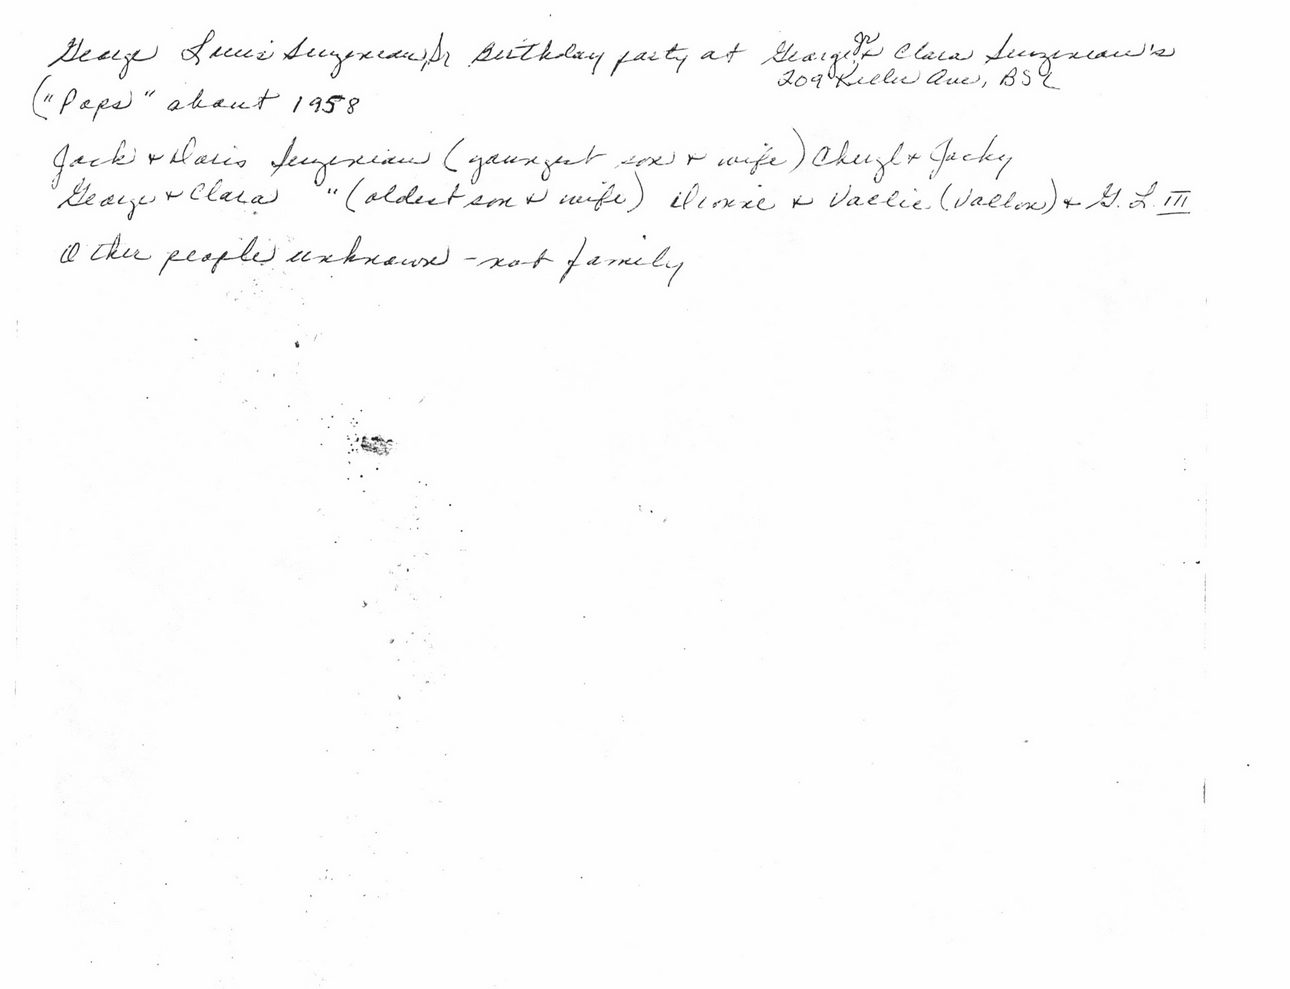 George Louis Suzeneau, Sr Birthday party at George Jr & Clara Suzeneau's
("Pops" about 1958 209 Keller Ave, BSL
Jack & Doris Suzeneau (youngest son & wife) Cheryl & Jacky
George & Clara " (oldest son & wife) & Vallie (Vallon) & G. L. III
Other people unknown - not family